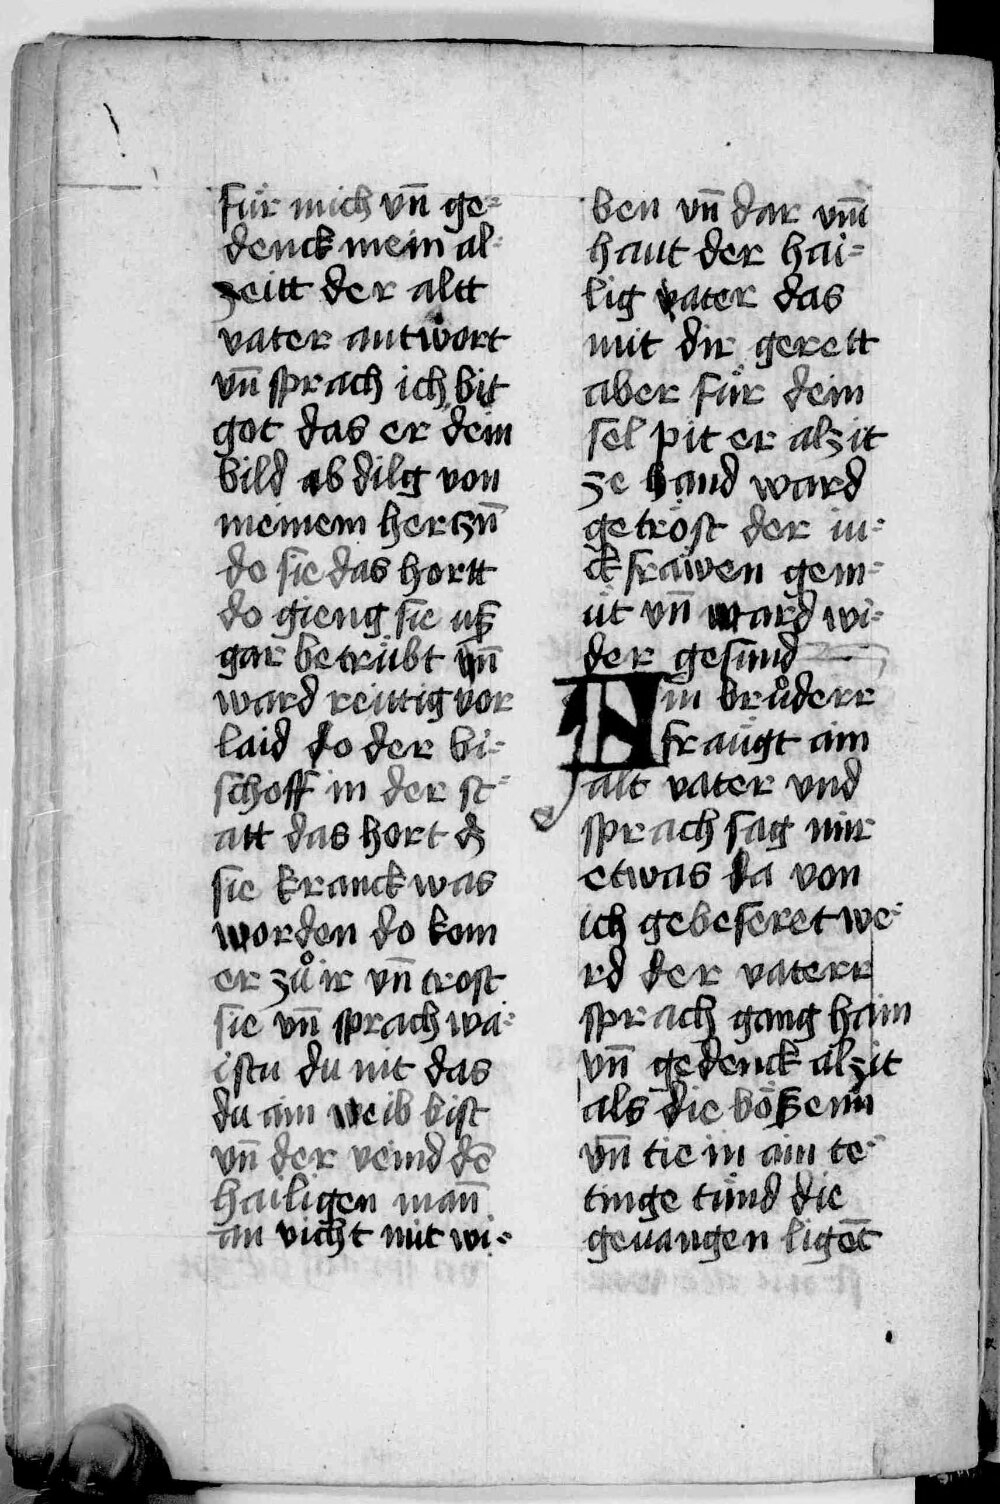 fúr mich vn̄ ge=
denck mein al=
zeitt der altt
vater antwort
vn̄ sprach ich bit
got das er dein
bild ab dilg von
meinem hertzn̄
do sie das hortt
do gieng sie uß
gar betrübt vn̄
ward reittig vor
laid do der bi=
schoff in der st=
att das hort dz
sie kranck was
worden do kom
er zů ir vn̄ trost
sie vn̄ sprach wa=
istu du nit das
du ain weib bist
vn̄ der veind dē
hailigen man̄
an vicht mit wi=
ben vn̄ dar vm̄
haut der hai=
lig vater das
mit dir gerett
aber für dein
sel pit er alzit
ze hand ward
getröst der iu=
ckfrawen gem=
üt vn̄ ward wi=
der gesund
AIn brůderr
fraügt ain
alt vater vnd
sprach sag mir
etwas da von
ich gebeseret we=
rd der vaterr
sprach gang hain
vn̄ gedenck alzit
als die bößenn
vn̄ tie in ain te=
tinge tünd die
geuangen ligēt